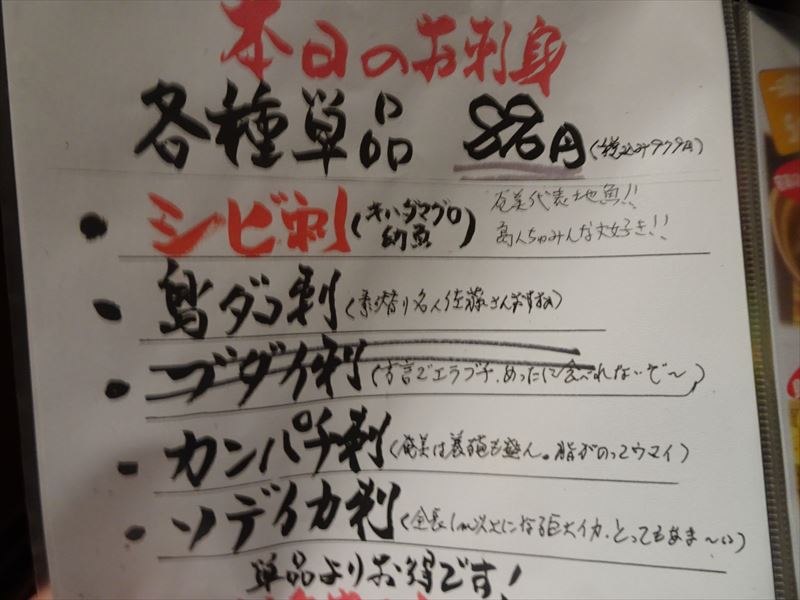 本日のお刺身
各種単品 890円(税込み979円)
・シビ刺(キハダマグロ幼魚) 奄美代表地魚!! 島人ちゅみんな大好き!!
・島ダコ刺(素潜り名人佐藤さんおすすめ)
・ブダイ刺(方言でエラブチ、めったに食べれないぞ〜)
・カンパチ刺(奄美は養殖も盛ん。脂がのってウマイ)
・ソデイカ刺(全長1m以上になる巨大イカ、とってもあま〜い)
単品よりお得です!